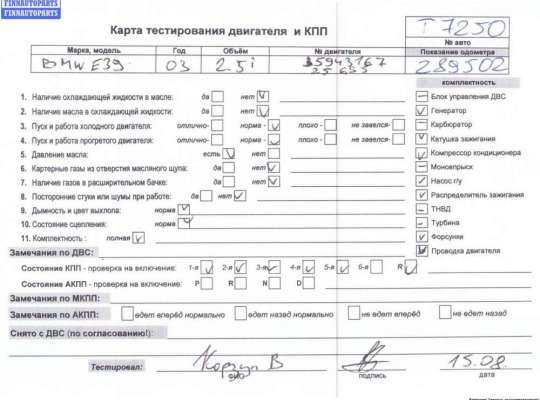 FINNAUTOPARTS
FINNAUTOPARTS
Карта тестирования двигателя и КПП
T 7250
№ авто
Марка, модель Год Объём № двигателя Показание одометра
BMW E39 03 2.5i 35943167 289502
25 6S5
комплектность
1. Наличие охлаждающей жидкости в масле: да нет
Блок управления ДВС
2. Наличие масла в охлаждающей жидкости: да нет
Генератор
3. Пуск и работа холодного двигателя: отлично- норма - плохо - не завелся-
Карбюратор
4. Пуск и работа прогретого двигателя: отлично- норма - плохо - не завелся-
Катушка зажигания
5. Давление масла: есть нет
Компрессор кондиционера
6. Картерные газы из отверстия масляного щупа: да нет
Моновпрыск
7. Наличие газов в расширительном бачке: да нет
Насос г/у
8. Посторонние стуки или шумы при работе: да нет
Распределитель зажигания
9. Дымность и цвет выхлопа: норма
ТНВД
10. Состояние сцепления: норма
Турбина
11. Комплектность : полная
Форсунки
Замечания по ДВС:
Проводка двигателя
Состояние КПП - проверка на включение: 1-я 2-я 3-я 4-я 5-я 6-я R
Состояние АКПП - проверка на включение: P R N D
Замечания по МКПП:
Замечания по АКПП: едет вперёд нормально едет назад нормально не едет вперёд не едет назад
Снято с ДВС (по согласованию!):
Тестировал: Корзун В 15.08.
ФИО подпись дата